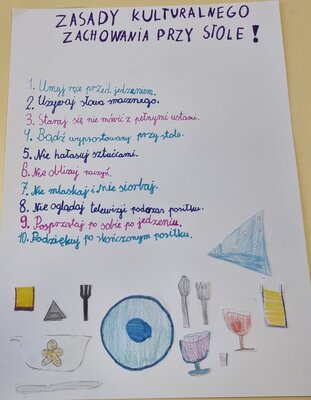 ZASADY KULTURALNEGO
ZACHOWANIA PRZY STOLE!
1. Umyj ręce przed jedzeniem.
2. Używaj słowa smacznego.
3. Staraj się nie mówić z pełnymi ustami.
4. Bądź wyprostowany przy stole.
5. Nie hałasuj sztućcami.
6. Nie oblizuj naczyń.
7. Nie mlaskaj i nie siorbaj.
8. Nie oglądaj telewizji podczas posiłku.
9. Posprzątaj po sobie po jedzeniu.
10. Podziękuj po skończonym posiłku.